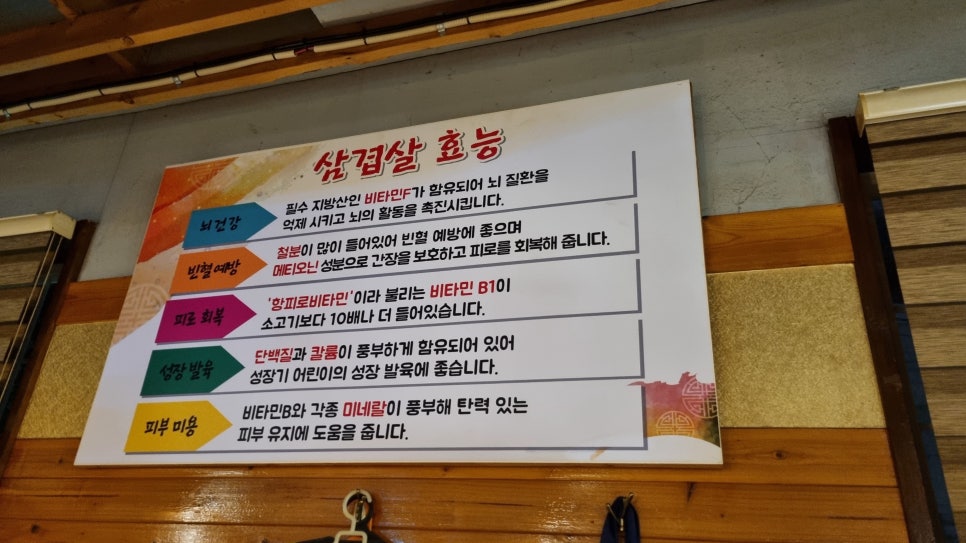 삼겹살 효능
뇌 건강
필수 지방산인 비타민F가 함유되어 뇌 질환을
억제 시키고 뇌의 활동을 촉진시킵니다.
빈혈 예방
철분이 많이 들어있어 빈혈 예방에 좋으며
메티오닌 성분으로 간장을 보호하고 피로를 회복해 줍니다.
피로 회복
'항피로비타민'이라 불리는 비타민 B1이
소고기보다 10배나 더 들어있습니다.
성장 발육
단백질과 칼륨이 풍부하게 함유되어 있어
성장기 어린이의 성장 발육에 좋습니다.
피부 미용
비타민B와 각종 미네랄이 풍부해 탄력 있는
피부 유지에 도움을 줍니다.